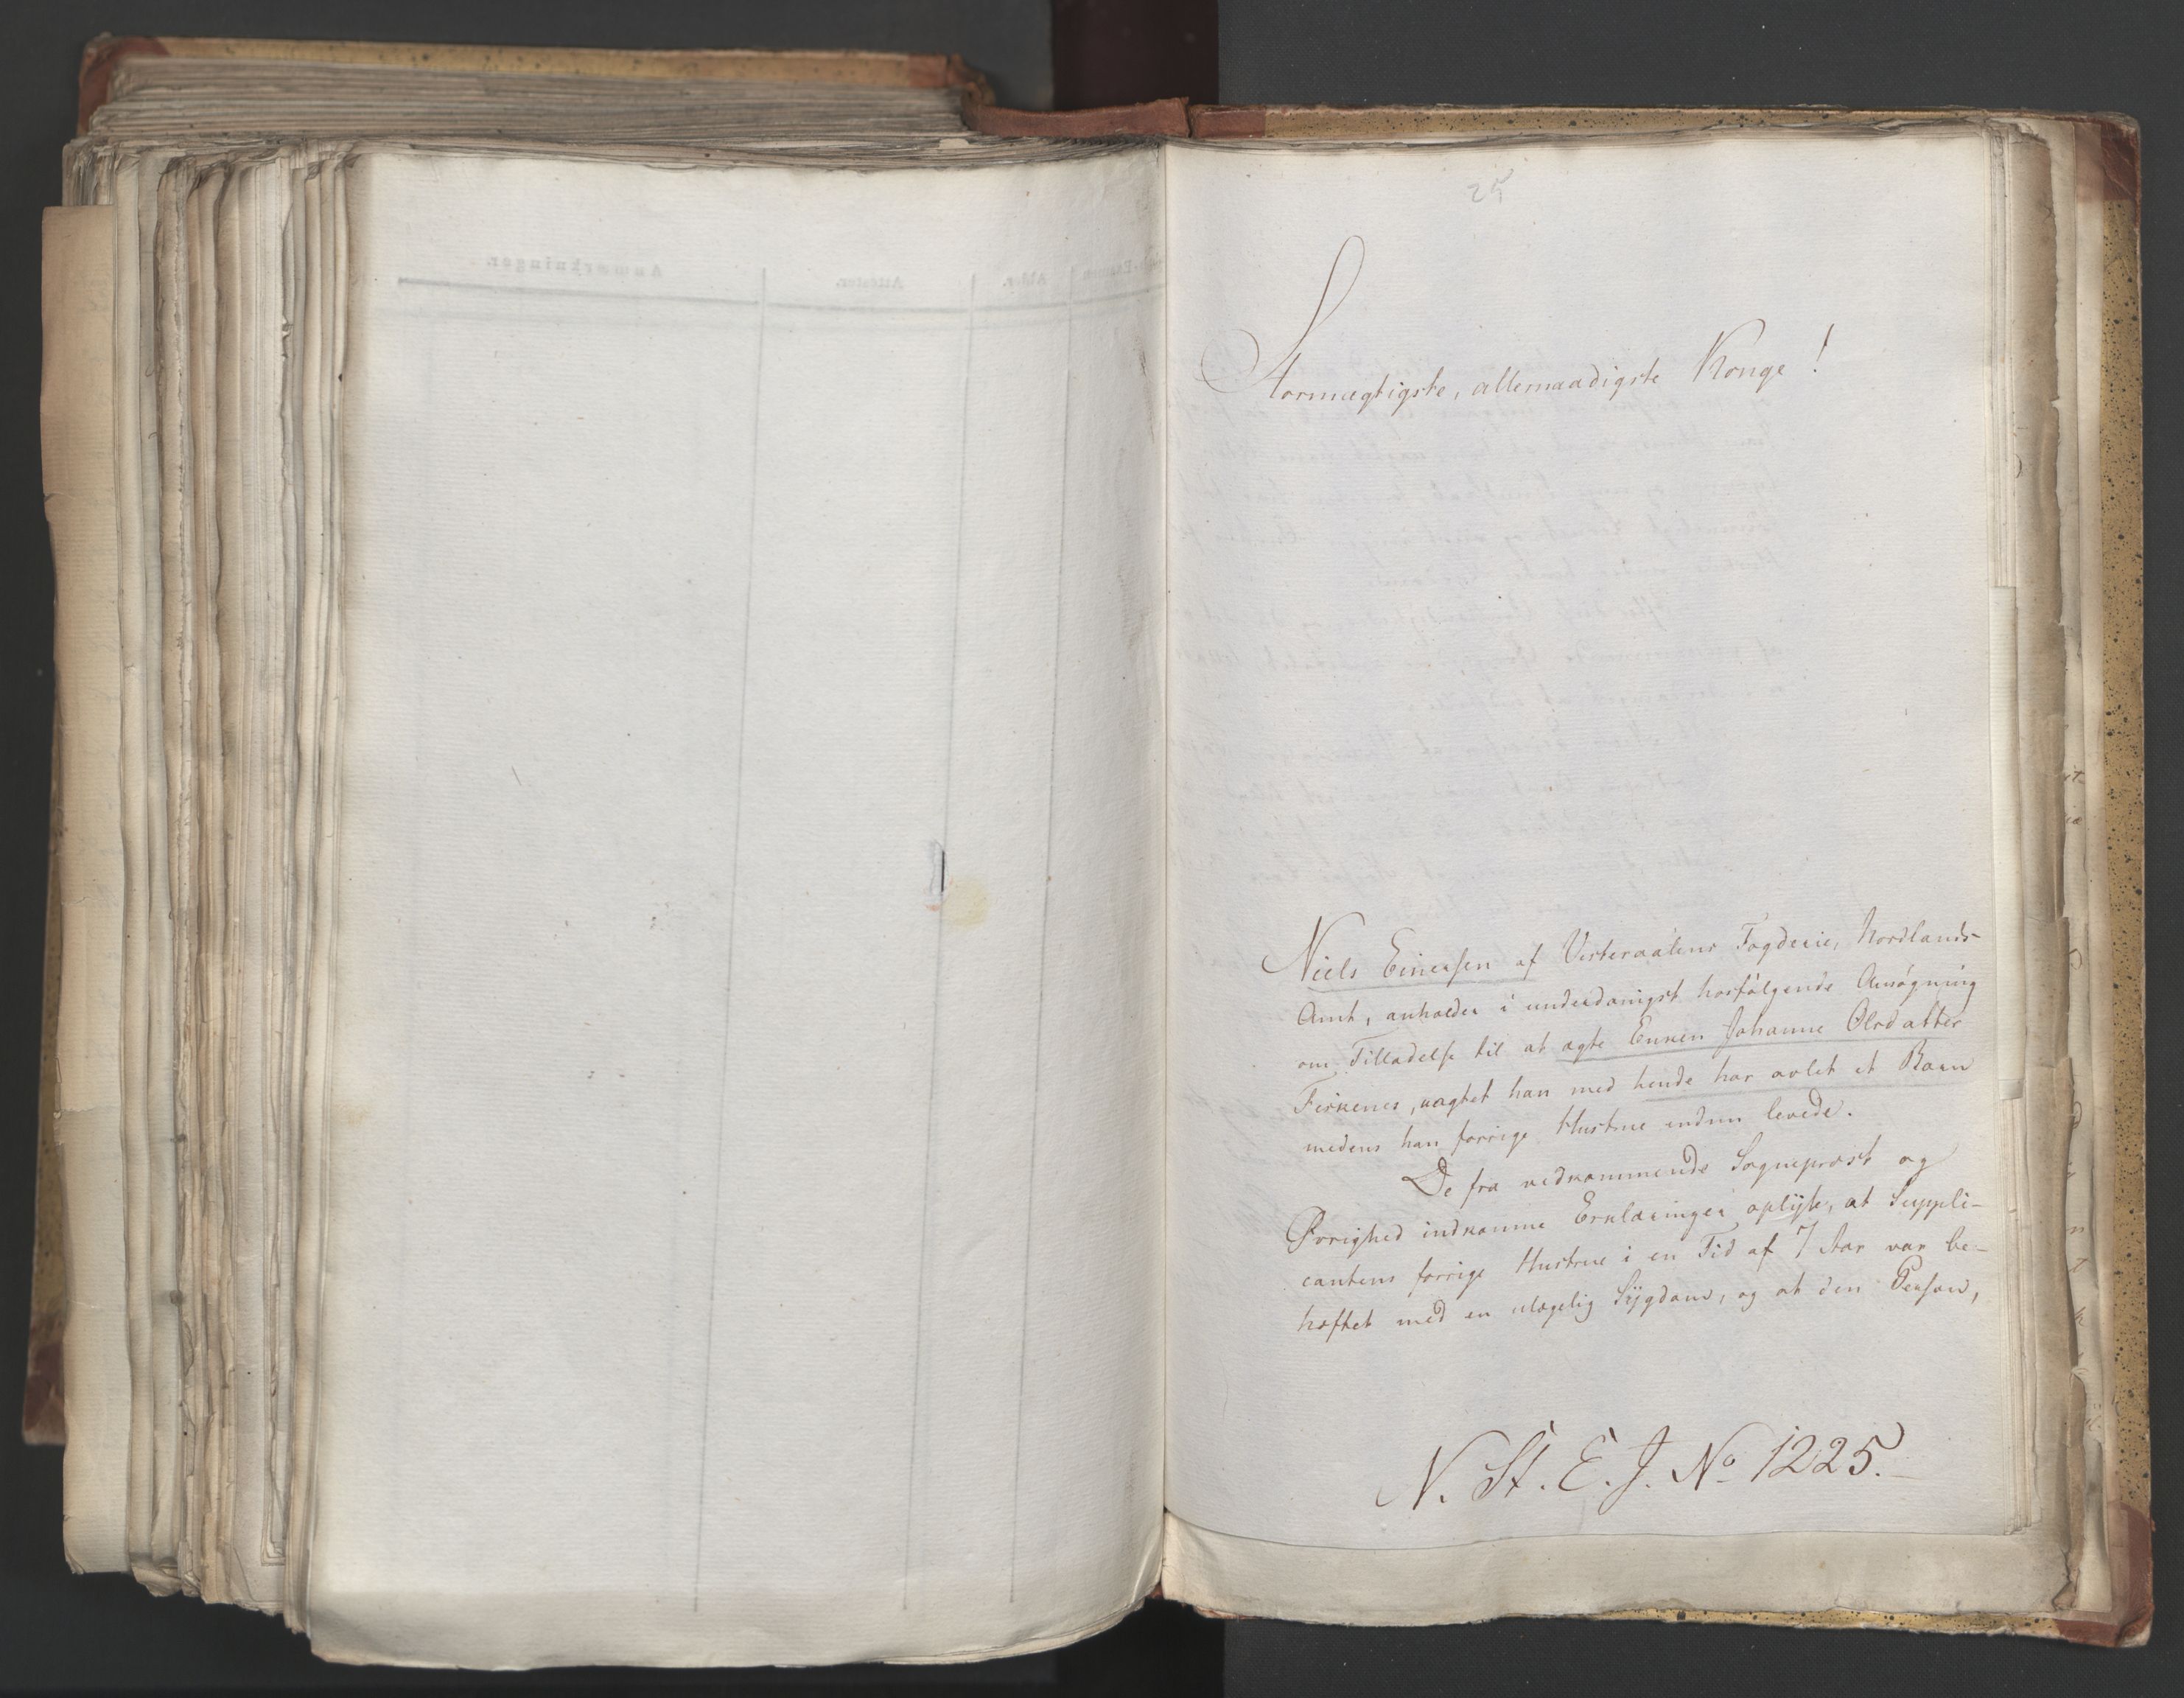 25
Stormægtigste, allernaadigste Konge!
Niels Einersen af Vesteraalens Fogderie, Nordlands-
Amt, anholder i underdanigst hosfølgende Ansøgning
om Tilladelse til at ægte Enken Johanne Olsdatter
uagtet han med hende har avlet et Barn
medens han forrige Hustrue endnu levede.
De fra vedkommende Sognepræst og
Øvrighed indkomne Erklæringer oplyse, at Suppli-
cantens forrige Hustrue i en Tid af 7 Aar var be-
hæftet med en ulægelig Sÿgdom, og at den Person,
N. St. E. J. No 1225.